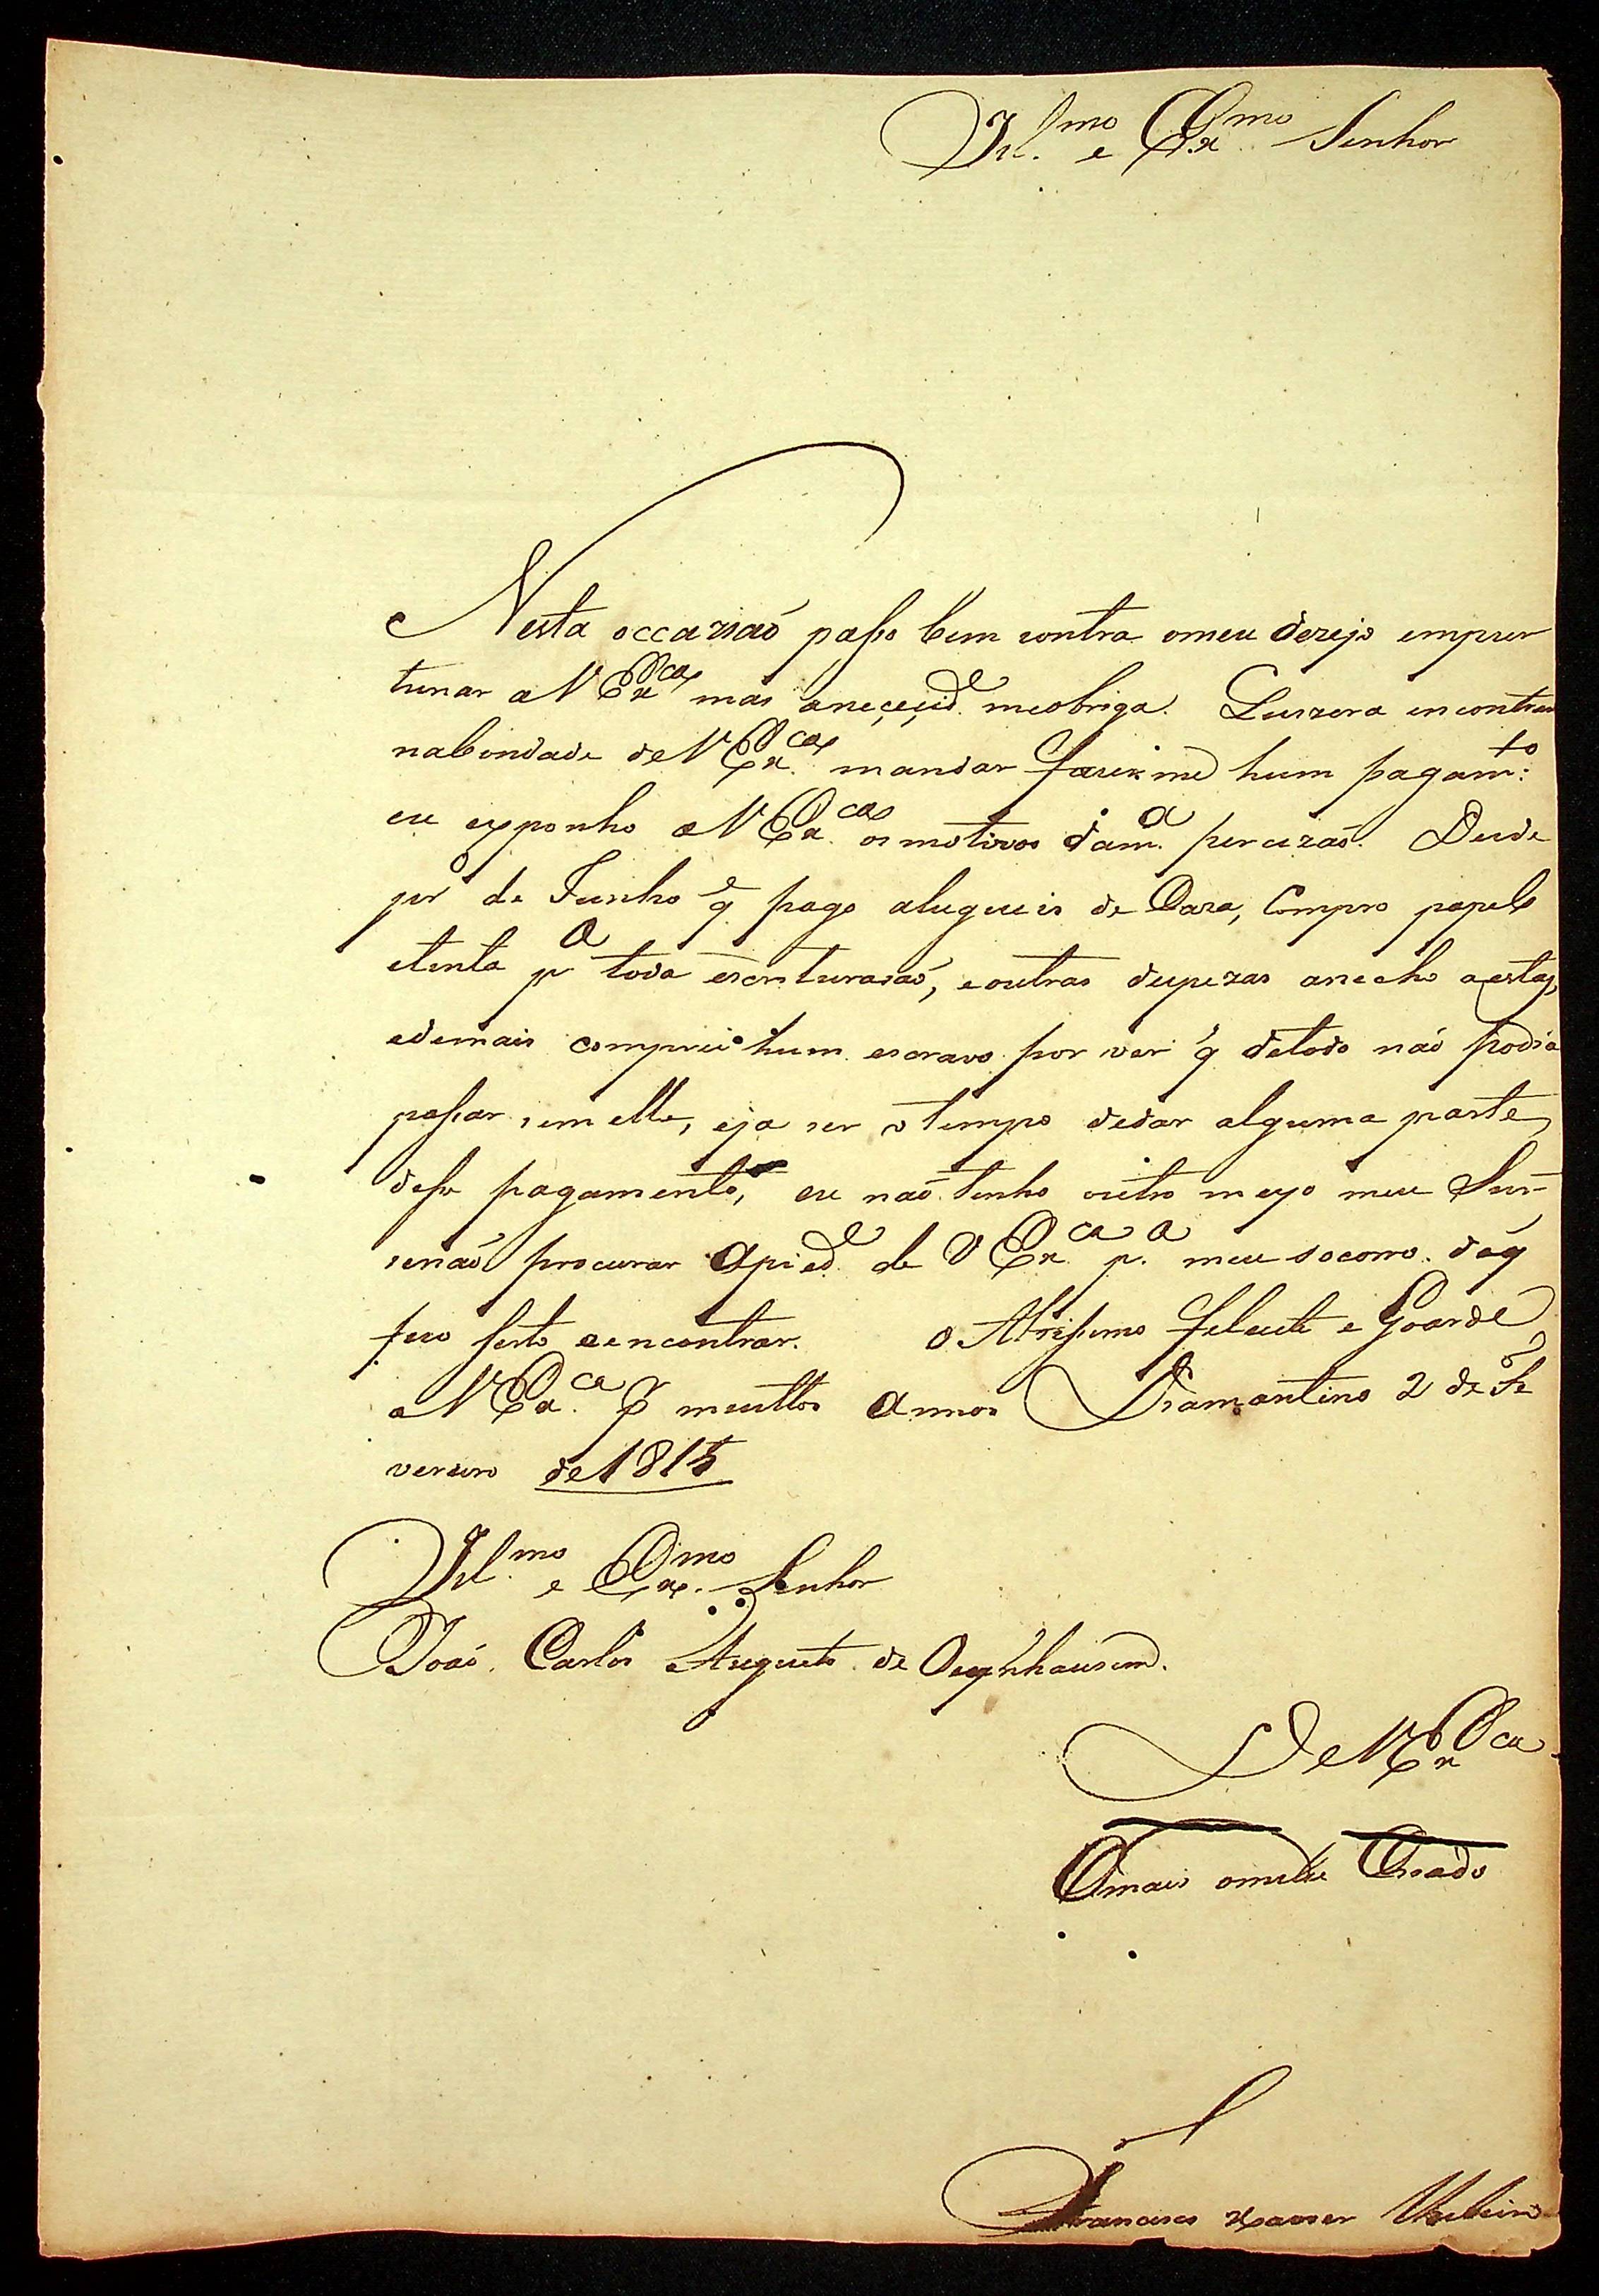 Ill.mo e Ex.mo Senhor
Nesta occaziaõ paſso bem contra omeu dezejo empur
tunar a V Ex.ca mas aneceçid.e meobriga. Quizera encontrar
nabondade de V Ex.ca mandar fazerme hum pagam.to:
eu exponho a V Ex.ca os motivos dam.a percizaõ. Desde
pr de Junho q̃ pago alugueis de Caza, Compro papel
etinta p.a toda escrituraçaõ, eoutras despezas anecho aestas,
edemais comprei hum escravo por ver q̃ detodo naõ podia
paſsar sem elle, eja ser o tempo dedar alguma parte
deſse pagamento, eu naõ tenho outro meyo meu Snr̃
senaõ procurar apied.e de V Ex.ca p.a meu socorro. doq̃
fico serto eencontrar. o Altissimo felecite e Goarde
a V Ex.ca p muittos Annos Diamantino 2 de Fe
vereiro de 1815
Ill.mo e Ex.mo Senhor
Joaõ Carlos Augusto de Oeynhausem.
De V Ex.ca
O mais omilde Criado
Francisco Xavier Ribeiro